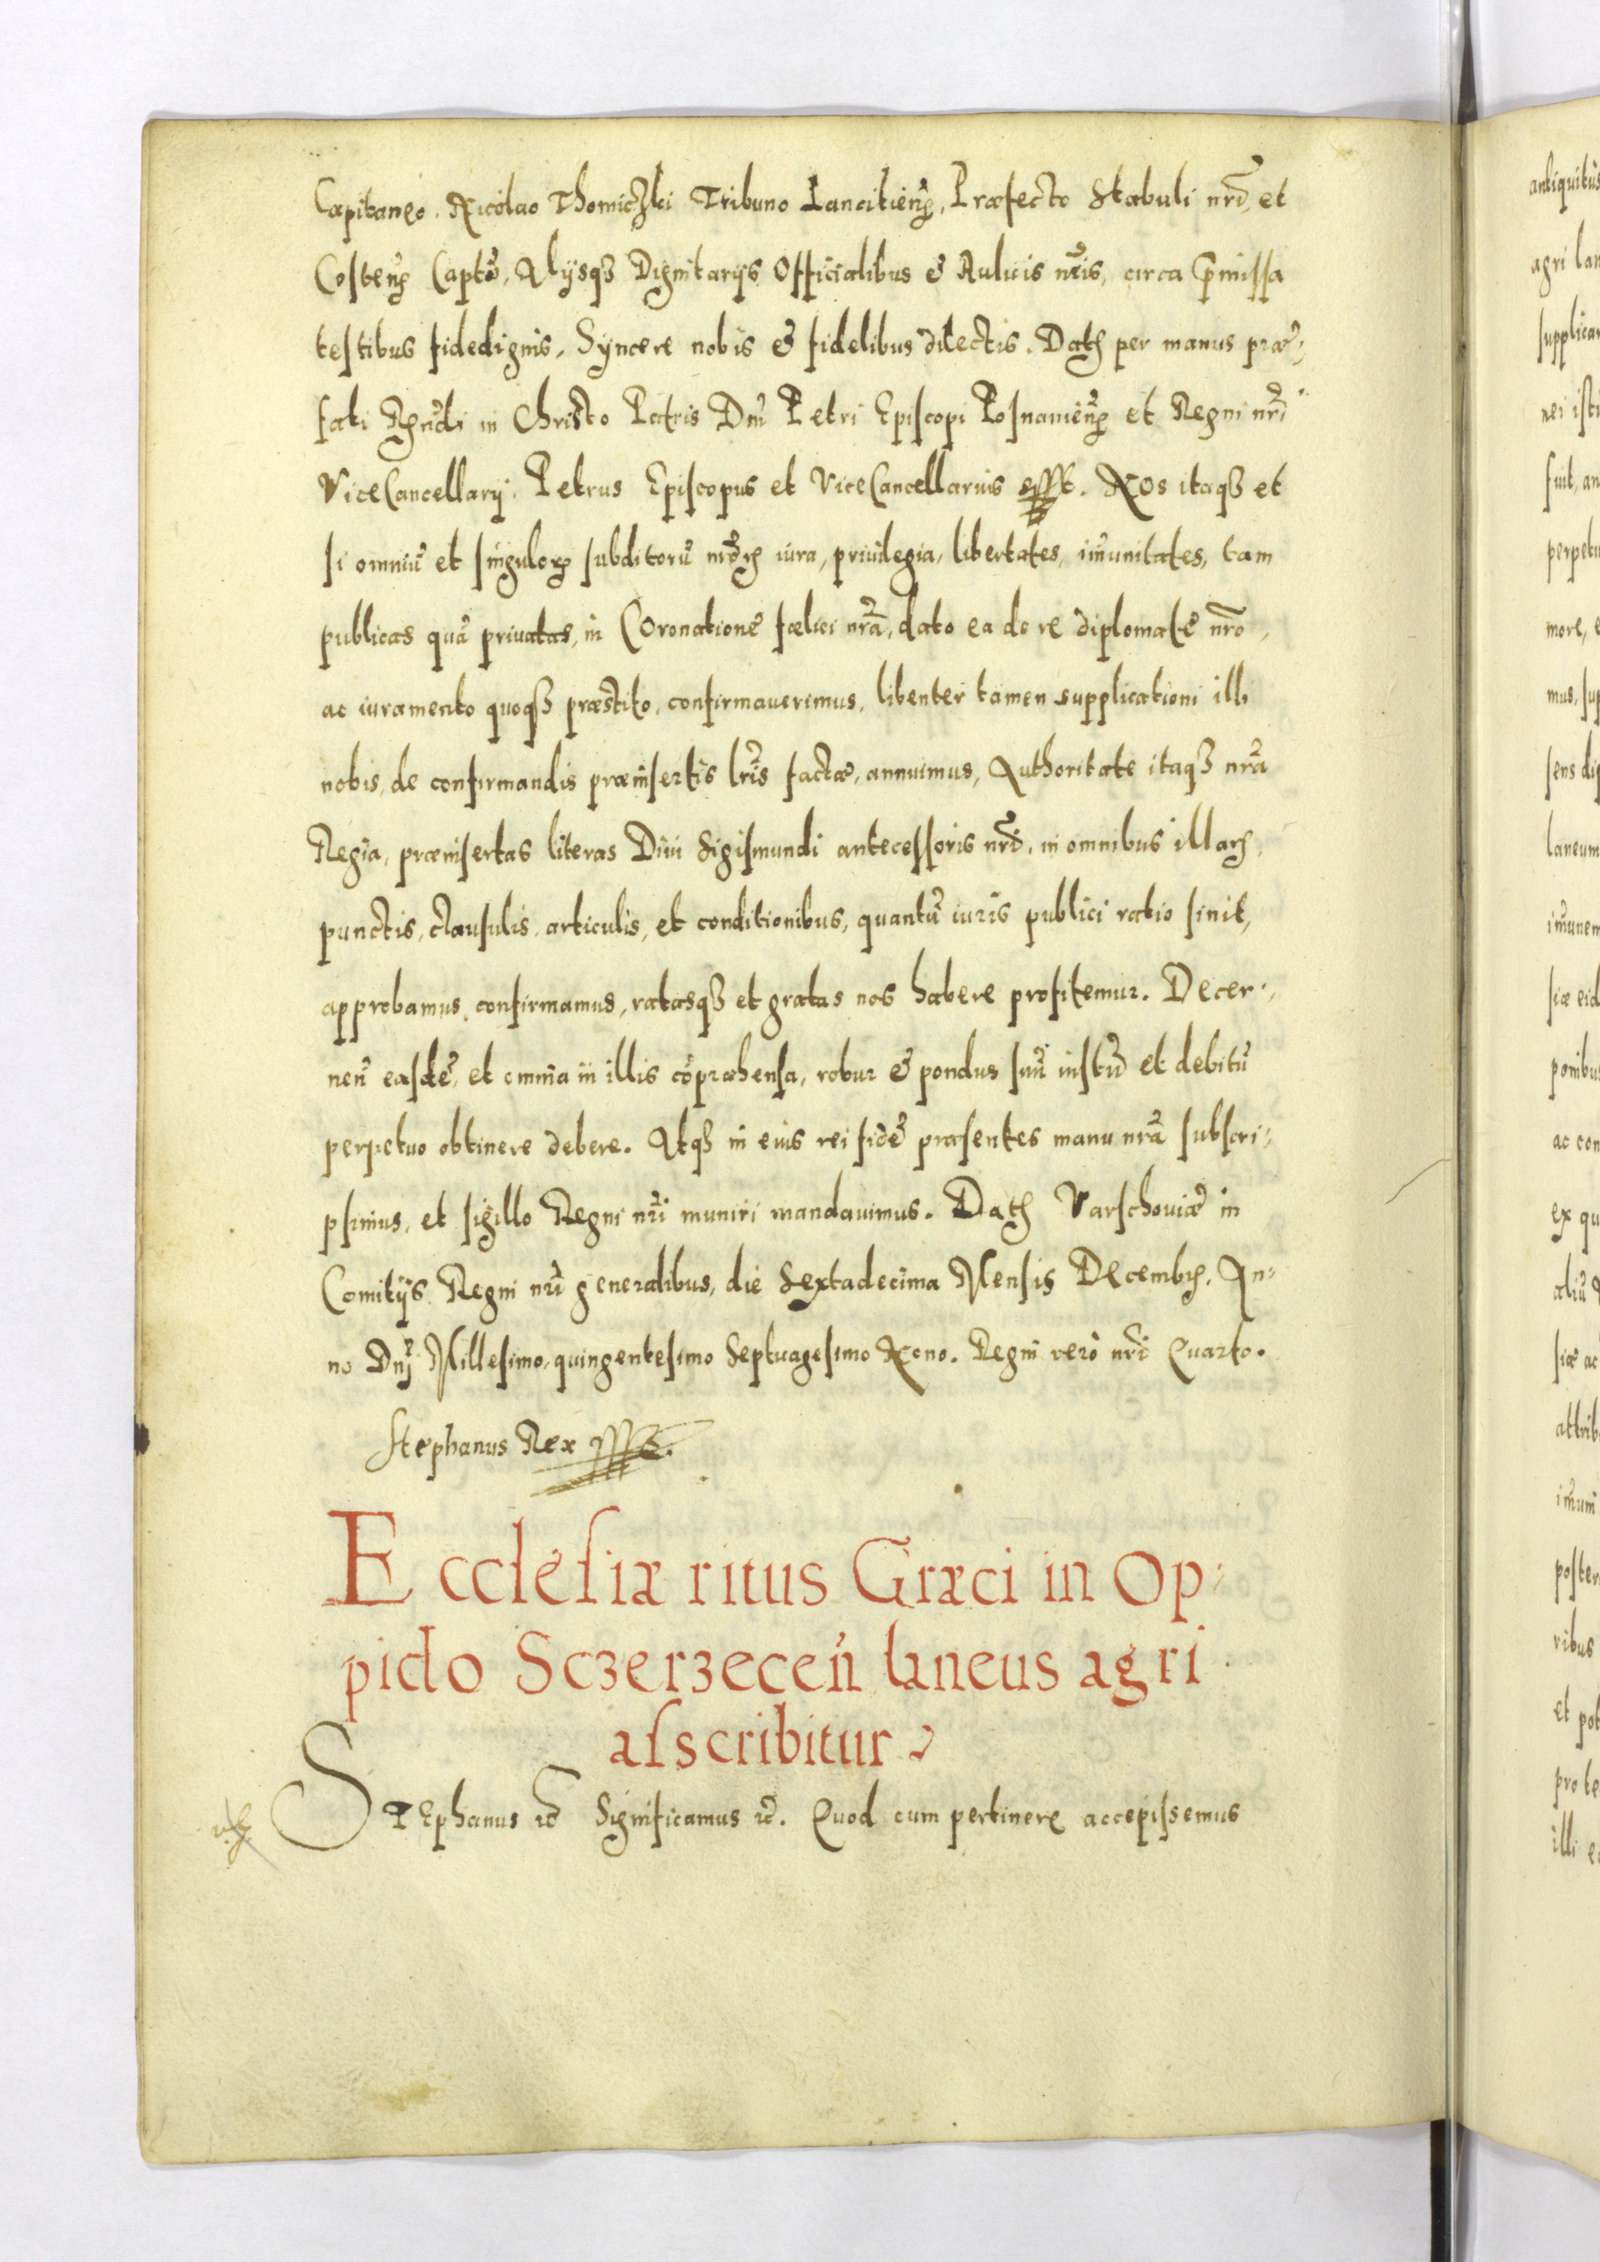 Capitaneo. Nicolao Thomiczki Tribuno Lanciτień, Præfecto Stabuli nr̃i, et
Costeñ Captō, Alijsqȝ Dignitarijs Officialibus & Aulicis nr̃is, circa p̃missa
testibus fidedignis, Syncere nobis & fidelibus dilectis. Datȝ per manus præ-
fati Rǹdi in Christo Patris Dn̄i Petri Episcopi Posnanień et Regni nr̃i
ViceCancellarij. Petrus Episcopus et ViceCancellarius sst. Nos itaqȝ et
si omniū et singuloꝝ subditorū nr̃oꝝ iura, priuilegia, libertates, im̄unitates, tam
publicas quā priuatas, in Coronatione fœlici nr̃a, dato ea de re diplomate nr̃o,
ac iuramento quoqȝ præstito, confirmauerimus, libenter tamen supplicationi illi
nobis, de confirmandis præinsertis lr̃is factæ, annuimus, Authoritate itaqȝ nr̃a
Regia, præinsertas literas Diui Sigismundi antecessoris nr̃i, in omnibus illaꝝ,
punctis, clausulis, articulis, et conditionibus, quantū iuris publici ratio sinit,
approbamus, confirmamus, ratasqȝ et gratas nos habere profitemur. Decer-
nen̄ easdē, et omnia in illis cōpræhensa, robur & pondus suū iustū et debitū
perpetuo obtinere debere. Atqȝ in eius rei fidē præsentes manu nr̃a subscri-
psimus, et sigillo Regni nr̃i muniri mandauimus. Datȝ Varschouiæ in
Comitijs Regni nr̃i generalibus, die Sextadecima Mensis Decembꝝ, An-
no Dnj̄ Millesimo, quingentesimo Septuagesimo Nono. Regni vero nr̃i Quarto.
Stephanus Rex sst.
Ecclesiæ ritus Græci in Op-
pido Sczerzeceń laneus agri
asscribitur
STEphanus ꝛc̄ Significamus ꝛc̄. Quod cum pertinere accepissemus